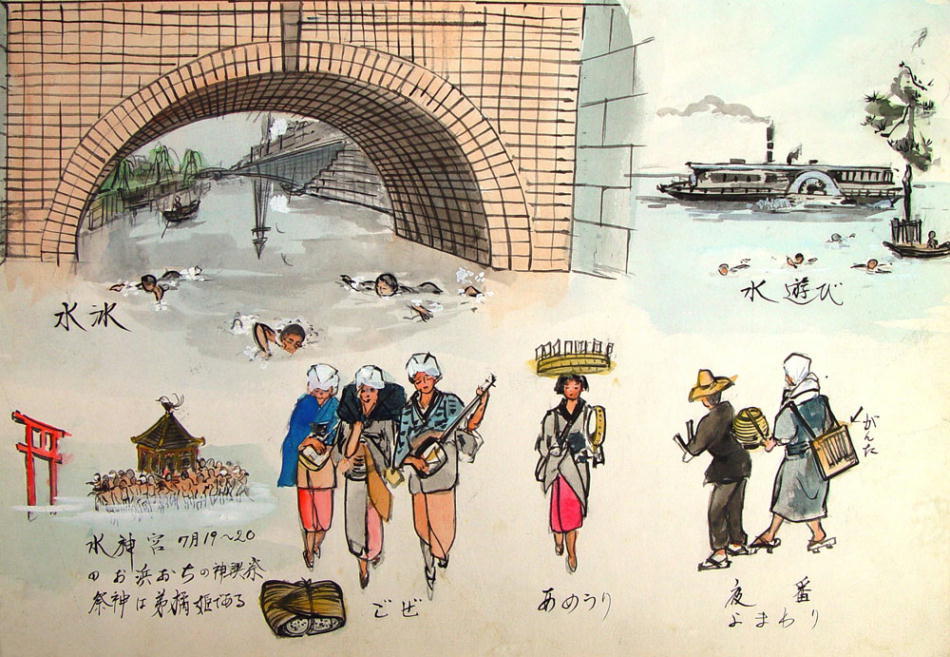 水泳
水遊び
がんた
水神宮 7月19~20
のお浜おちの神輿祭
祭神は弟橘姫である
ごぜ
あめうり
夜番
よまわり